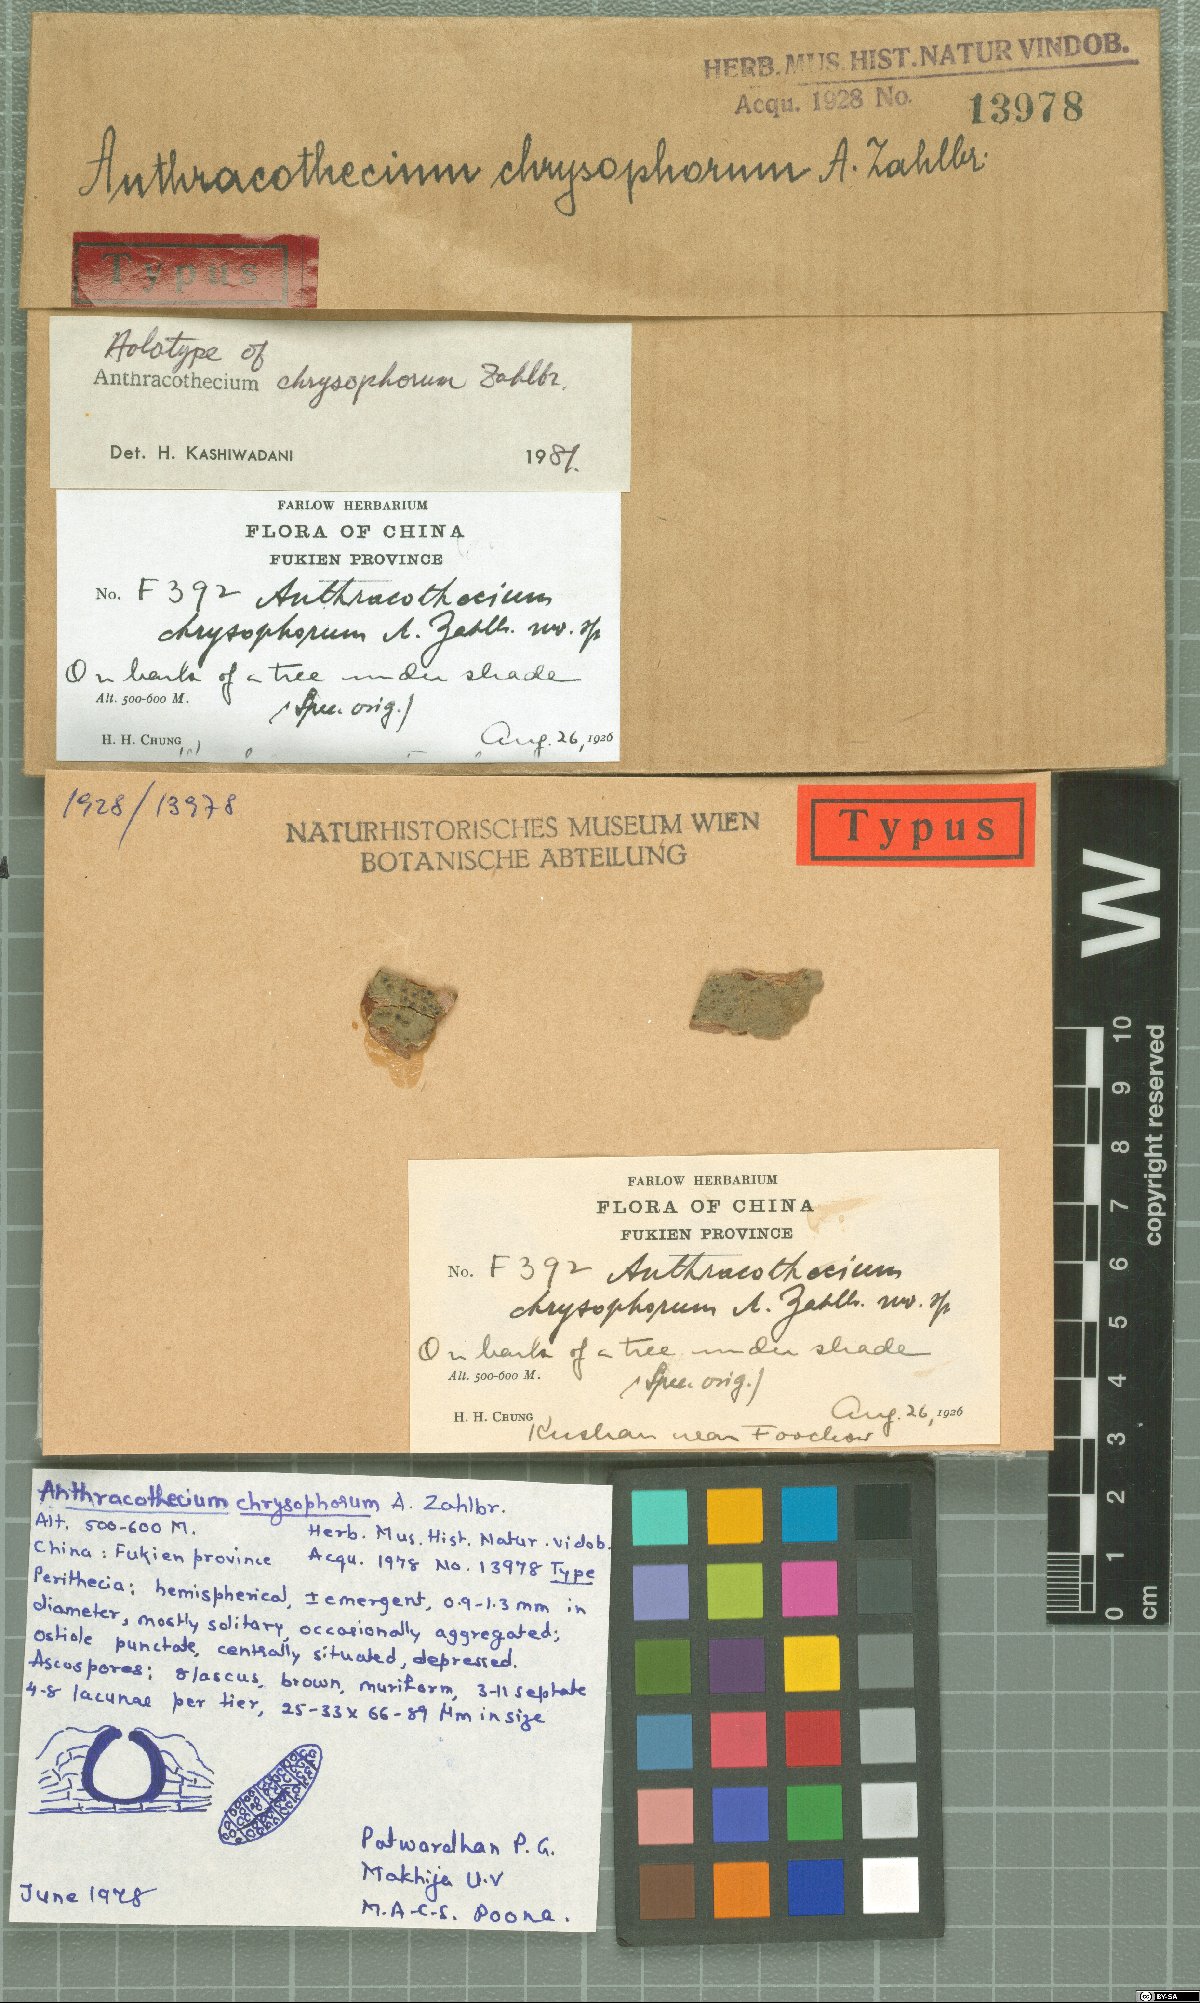 HERB. MUS. HIST. NATUR VINDOB.
Acqu. 1928 No. 13978
Anthracothecium chrysophorum A. Zahlbr.
Typus
Holotype of
Anthracothecium chrysophorum Zahlbr.
Det. H. KASHIWADANI 1981.
FARLOW HERBARIUM
FLORA OF CHINA
FUKIEN PROVINCE
No. F 392 Anthracothecium
chrysophorum A. Zahlb. nov. sp
On bark of a tree under shade
Alt. 500-600 M.
(Spec. orig.)
H. H. CHUNG Aug. 26, 1926
1928/13978
NATURHISTORISCHES MUSEUM WIEN
BOTANISCHE ABTEILUNG
Typus
FARLOW HERBARIUM
FLORA OF CHINA
FUKIEN PROVINCE
No. F 392 Anthracothecium
chrysophorum A. Zahlb. nov. sp
On bark of a tree under shade
Alt. 500-600 M.
(Spec. orig.)
H. H. CHUNG Aug. 26, 1926
Kushan near Foochow
W
10
9
8
7
6
5
4
3
2
1
0
cm
copyright reserved
Anthracothecium chrysophorum A. Zahlbr.
Alt. 500-600 M.
Herb. Mus. Hist. Natur. vidob.
China: Fukien province
Acqu. 1978 No. 13978 Type
Perithecia: hemispherical, ± emergent, 0.9-1.3 mm in
diameter, mostly solitary, occasionally aggregated;
ostiole punctate, centrally situated, depressed.
Ascospores: 8/ascus, brown, muriform, 3-11 septate
4-8 lacunae per tier, 25-33 x 66-89 µm in size
Patwardhan P. G.
Makhija U.V
M.A.C.S. Poona.
June 1978
cc BY-SA